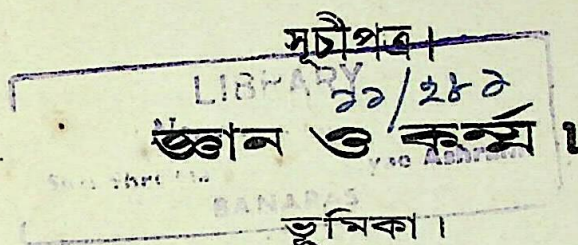 সূচীপত্র।
LIBRARY
১১/২৮১
জ্ঞান ও কর্ম্ম।
Ashram
BANARAS
ভূমিকা।